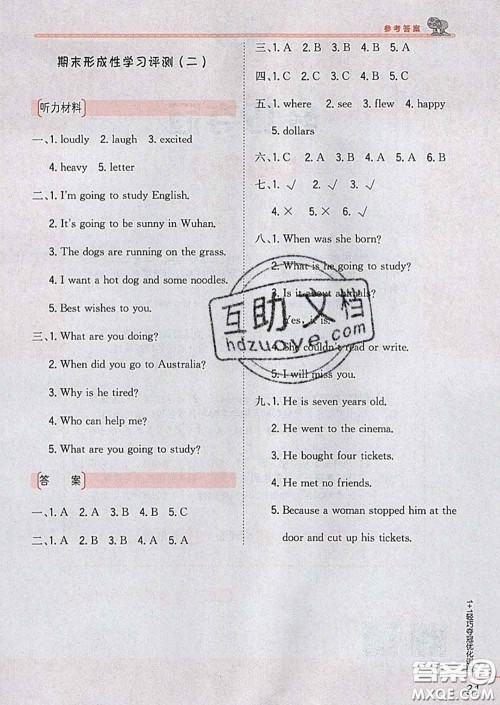 参考答案
期末形成性学习评测(二)
听力材料
一、1. loudly 2. laugh 3. excited
4. heavy 5. letter
二、1. I'm going to study English.
2. It's going to be sunny in Wuhan.
3. The dogs are running on the grass.
4. I want a hot dog and some noodles.
5. Best wishes to you.
三、1. What are you doing?
2. When did you go to Australia?
3. Why is he tired?
4. Who can help me?
5. What are you going to study?
答 案
一、1. B 2. A 3. B 4. B 5. C
二、1. A 2. B 3. B 4. A 5. A
三、1. A 2. B 3. A 4. A 5. B
四、1. C 2. C 3. A 4. B 5. A
五、1. where 2. see 3. flew 4. happy
5. dollars
六、1. C 2. B 3. A 4. B 5. A 6. B
七、1. √ 2. √ 3. √
4. × 5. × 6. √
八、1. When was she born?
2. What is he going to study?
3. Is it about animals?
Yes, it is.
4. She couldn't read or write.
5. I will miss you.
九、1. He is seven years old.
2. He went to the cinema.
3. He bought four tickets.
4. He met no friends.
5. Because a woman stopped him at the
door and cut up his tickets.
互助文档
hdzuoye.com
1+1轻巧夺冠优化
答案圈
MXQE.COM